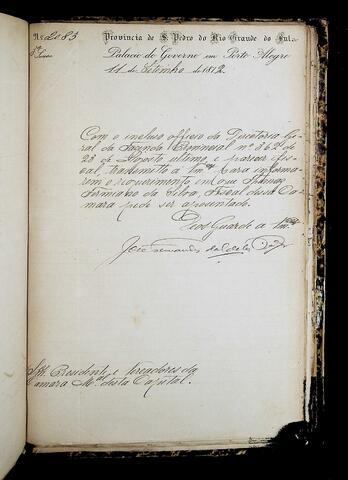 N. 2083
Provincia de S. Pedro do Rio Grande do Sul.
Palacio do Governo em Porto Alegre
11 de Setembro de 1872
Com o incluso officio da Directoria Ge-
ral da Fazenda Provincial nº 362 de
23 de Agosto ultimo, e parecer fis-
cal, transmitto a Vmcês para informa-
rem o requerimento em que
Firmiano da Silva, Fiscal dessa Ca-
mara pede ser aposentado.
Deos Guarde a Vmcês
José Fernandes da Costa
Snrs. Presidente e Vereadores da
Camara Mal desta Capital.